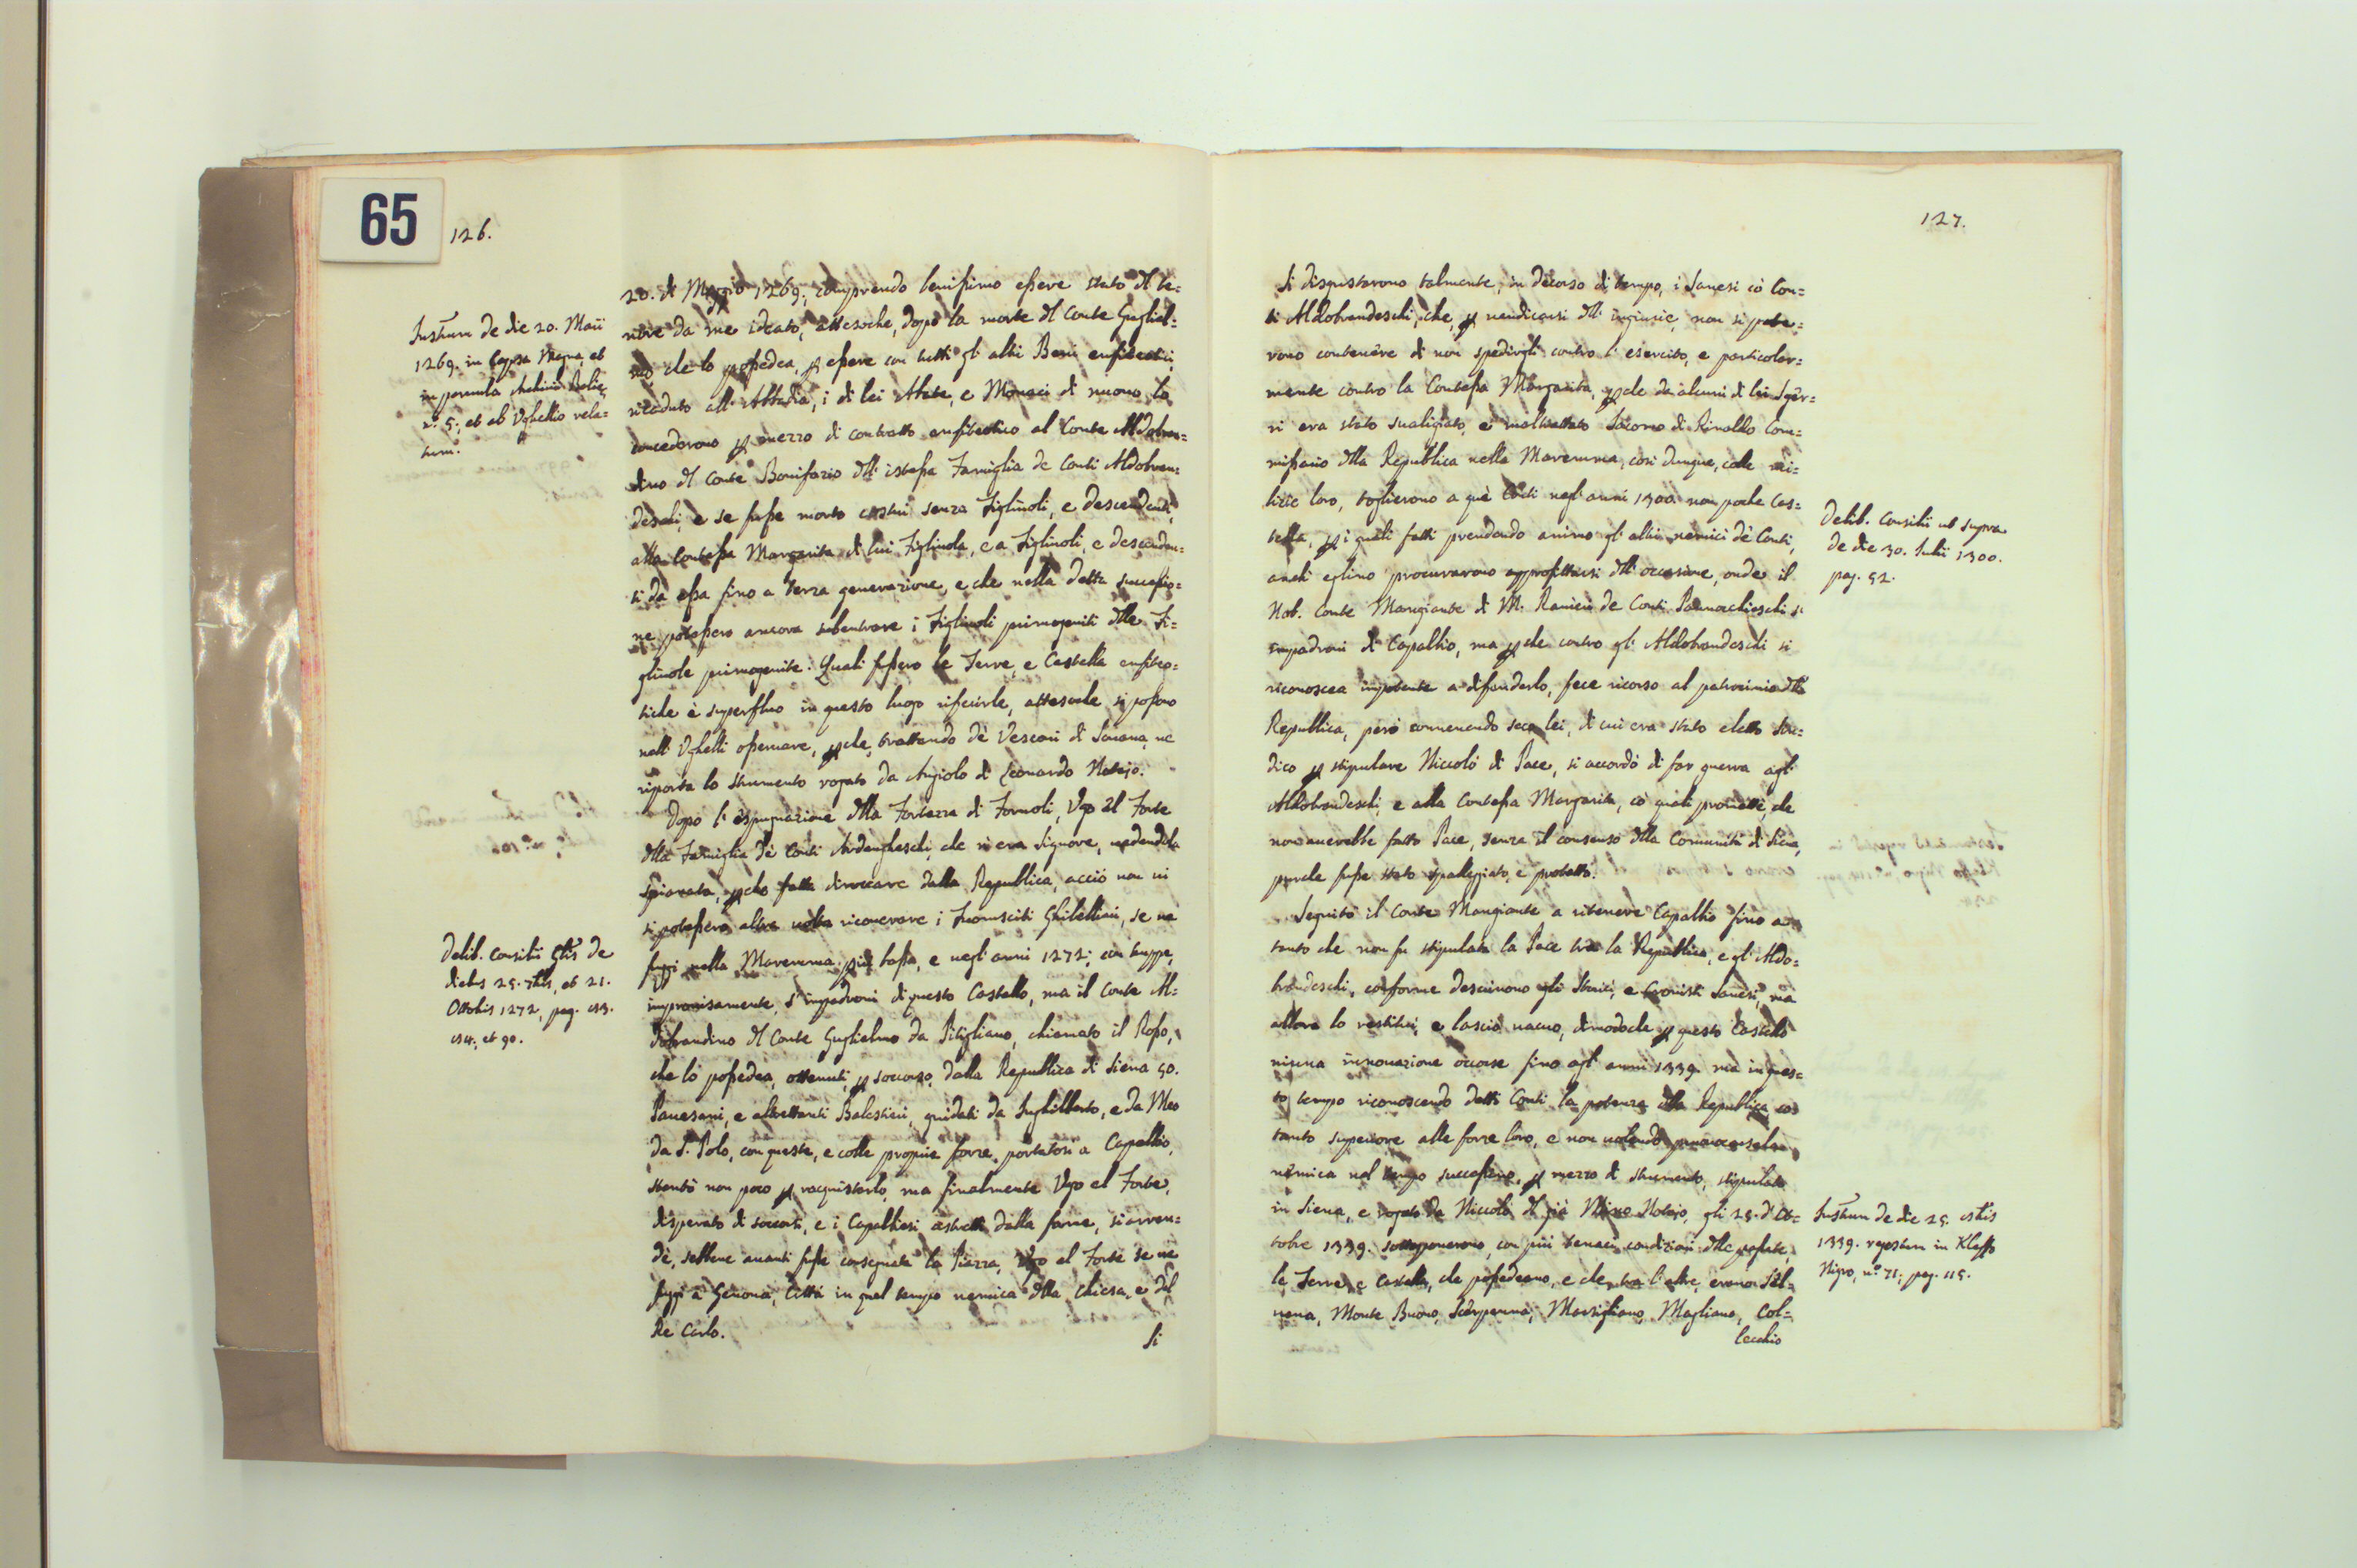 65
126.
20. di Maggio 1269; comprendo benissimo essere stato dl te=
nore da me ideato, attesoche, dopo la morte dl Conte Gugliel=
mo che lo possedea, p essere con tutti gl' altri Beni enfiteotici
ricaduto all' Abbadia, i di lei Abate, e Monaci di nuovo lo
concederono p mezzo di contratto enfiteotico al Conte Aldobran=
dino dl Conte Bonifazio dll' istessa Famiglia de Conti Aldobran=
deschi, e se fusse morto costui senza Figliuoli, e descendenti,
alla Contessa Margarita di lui Figliuola, e a Figliuoli, e descenden=
ti da essa fino a terza generazione, e che nella detta successio=
ne potessero ancora subentrare i Figliuoli primogeniti dlle Fi=
gliuole primogenite. Quali fussero le Terre, e Castella enfiteo=
tiche è superfluo in questo luogo riferirle, attesoche si possono
nell' Ughelli osservare, pche, trattando de' Vescovi di Sovana, ne
riporta lo strumento rogato da Angiolo di Leonardo Notajo.
Dopo l' espugnazione dlla Fortezza di Fornoli, Ugo dl Forte
dlla Famiglia de' Conti Ardengheschi, che n' era Signore, vedendola
spianata, pche fatta diroccare dalla Republica, acciò non vi
si potessero altra volta ricoverare i Fuorusciti Ghibellini, se ne
fuggì nella Maremma più bassa, e negl' anni 1272; con truppe,
improvisamente, s' impadronì di questo Castello, ma il Conte Al=
dobrandino dl Conte Guglielmo da Pitigliano, chiamato il Rosso,
che lo possedea, ottenuti, p soccorso, dalla Republica di Siena 50.
Pavesani, e altrettanti Balestieri, guidati da Inghilberto, e da Meo
da S. Polo, con queste, e colle proprie forze, portatosi a Capalbio,
stentò non poco p racquistarlo, ma finalmente Ugo el Forte,
disperato di soccorsi, e i Capalbiesi astretti dalla fame, si arren=
dè, sebbene avanti fusse consegnata la Piazza, Ugo el Forte se ne
fuggì a Genova, Città in quel tempo nemica dlla Chiesa, e dl
Re Carlo.
Si
Instrum de die 20. Maii
1269. in Capsa Magna, et
in parvula
n.º 5; et ab Ughellio rela=
tum.
Delib. Consilii Gtis de
diebus 25. 7bris, et 21.
Ottobris 1272, pag.
et 90.
127.
Si disgustorono talmente, in decorso di tempo, i Sanesi cò Con=
ti Aldobrandeschi, che, p vendicarsi dll' ingiurie, non si pote=
rono contenere di non spedirgli contro l' esercito, e particolar=
mente contro la Contessa Margarita, pche da alcuni di lei Sgher=
ri era stato svaligiato, e maltrattato Iacomo di Rinaldo Com=
missario dlla Republica nella Maremma, così dunque, colle mi=
lizie loro, toglierono a què Conti negl' anni 1300. non poche Cas=
tella, p i quali fatti prendendo animo gl' altri nemici de' Conti,
anch' eglino procurarono approfittarsi dll' occasione, onde il
Nob. Conte Mangiante di M. Ranieri de Conti Pannocchieschi s'
impadronì di Capalbio, ma pche contro gl' Aldobrandeschi si
riconoscea impotente a difenderlo, fece ricorso al patrocinio dlla
Republica, però convenendo seco lei, di cui era stato eletto Sin=
dico p stipulare Niccolò di Pace, si accordò di far guerra agl'
Aldobrandeschi, e alla Contessa Margarita, cò quali promesse, che
non averebbe fatto Pace, senza il consenso dlla Comunità di Siena,
purche fusse stato spalleggiato, e protetto.
Seguitò il Conte Mangiante a ritenere Capalbio fino a
tanto che non fu stipulata la Pace tra la Republica, e gl' Aldo=
brandeschi, conforme descrivono gli Storici, e Cronisti Sanesi, ma
allora lo restituì, e lasciò vacuo, dimodoche p questo Castello
niuna innovazione occorse fino agl' anni 1339. ma in ques=
to tempo riconoscendo detti Conti la potenza dlla Republica co=
tanto superiore alle forze loro, e non volendo provocarsela
nemica nel tempo successivo, p mezzo di strumento, stipulato
in Siena, e rogato da Niccolò dl già Mino Notajo, gli 25. d' Ot=
tobre 1339. sottoponerono, con più tenaci condizioni dlle passate,
le Terre, e Castella, che possedeano, e che, tra l' altre, erano Sel=
vena, Monte Buono, Scerpenna, Marsigliano, Magliano, Col=
lecchio
Delib. Consilii ut supra
de die 30. Iulii 1300.
pag. 52.
Instrum de die 25. 8bris
1339. registrum in Kleffo
Nigro, n.º 71; pag. 115.